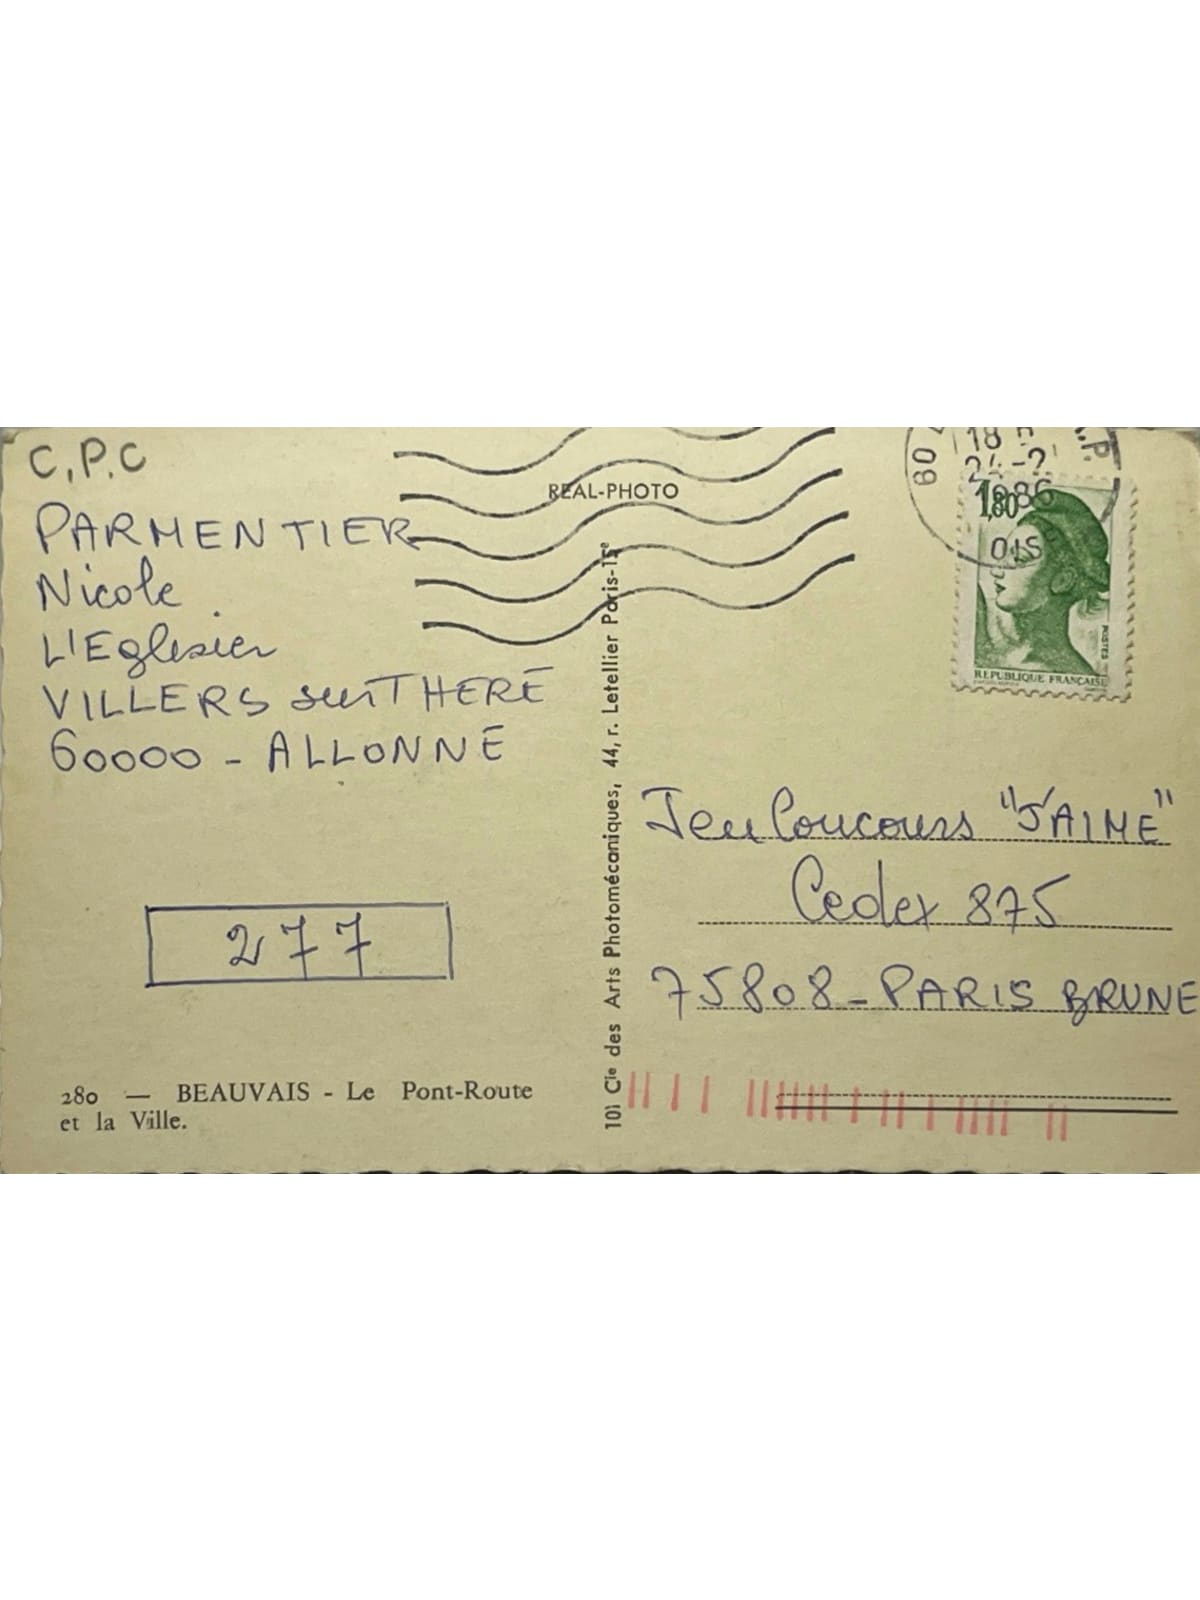 C.P.C
PARMENTIER
Nicole
L'Eglisier
VILLERS sur THERE
60000 - ALLONNE
277
280 — BEAUVAIS - Le Pont-Route
et la Ville.
REAL-PHOTO
101 Cie des Arts Photomécaniques, 44, r. Letellier Paris-15e
60
R.P.
18
1986
OIS
1,80
POSTES
REPUBLIQUE FRANÇAISE
Jeu Concours "J'AIME"
Cedex 875
75808 - PARIS BRUNE